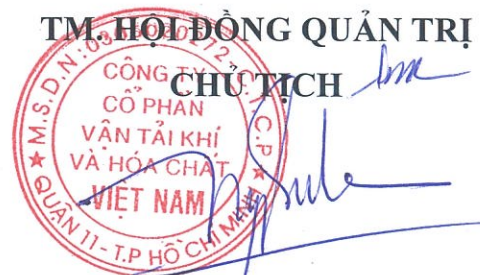 TM. HỘI ĐỒNG QUẢN TRỊ
CHỦ TỊCH
CÔNG TY
CỔ PHẦN
VẬN TẢI KHÍ
VÀ HÓA CHẤT
VIỆT NAM
M.S.D.N:
C.T.C.P
QUẬN 11 - T.P HỒ CHÍ MINH